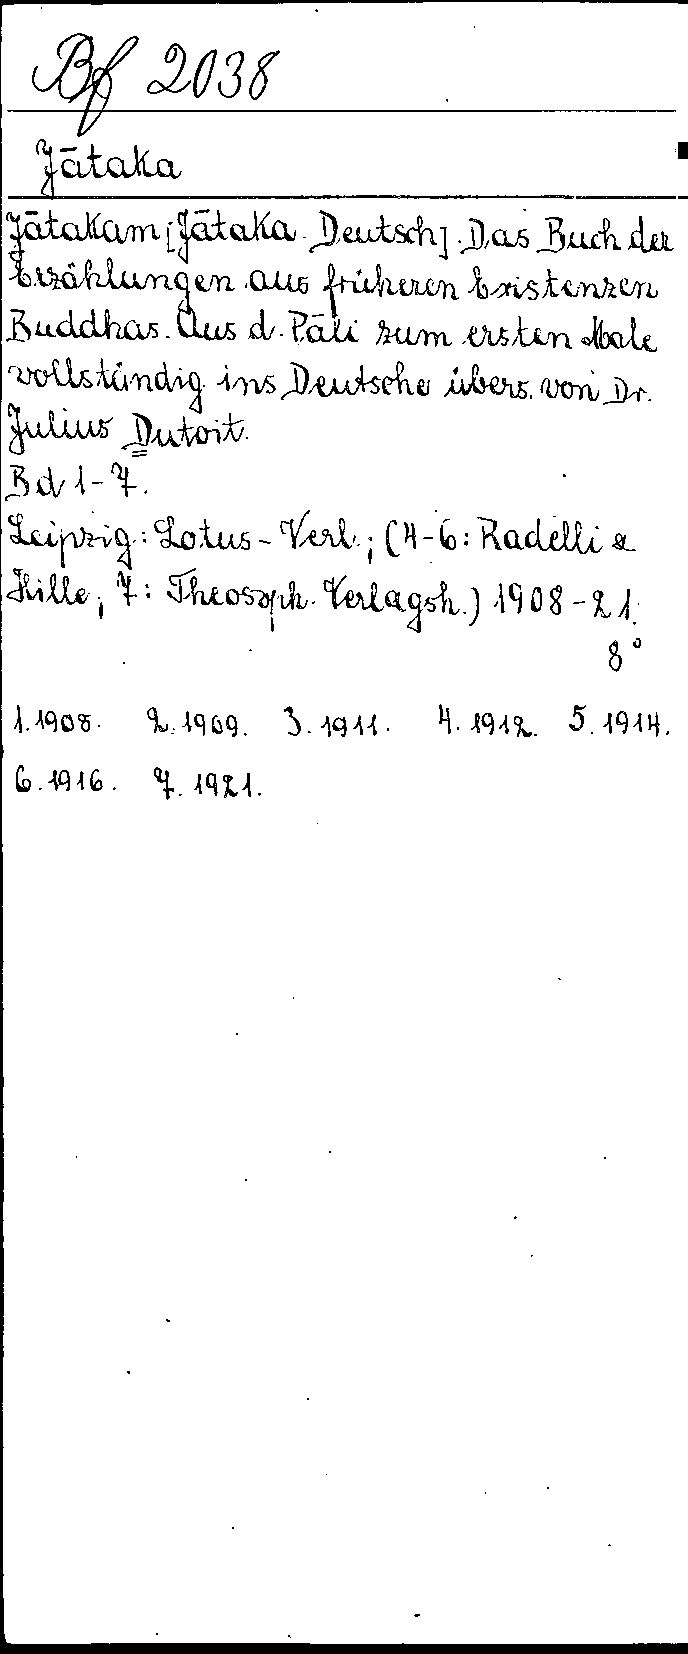 Bf 2038
Jātaka
Jātakam [Jātaka. Deutsch]. Das Buch der
Erzählungen aus früheren Existenzen
Buddhas. Aus d. Pāli zum ersten Male
vollständig ins Deutsche übers. von Dr.
Julius Dutoit.
Bd 1-7.
Leipzig: Lotus-Verl.; (4-6: Radelli &
Hille; 7: Theosoph. Verlagsh.) 1908-21.
8°
1.1908. 2.1909. 3.1911. 4.1912. 5.1914.
6.1916. 7.1921.